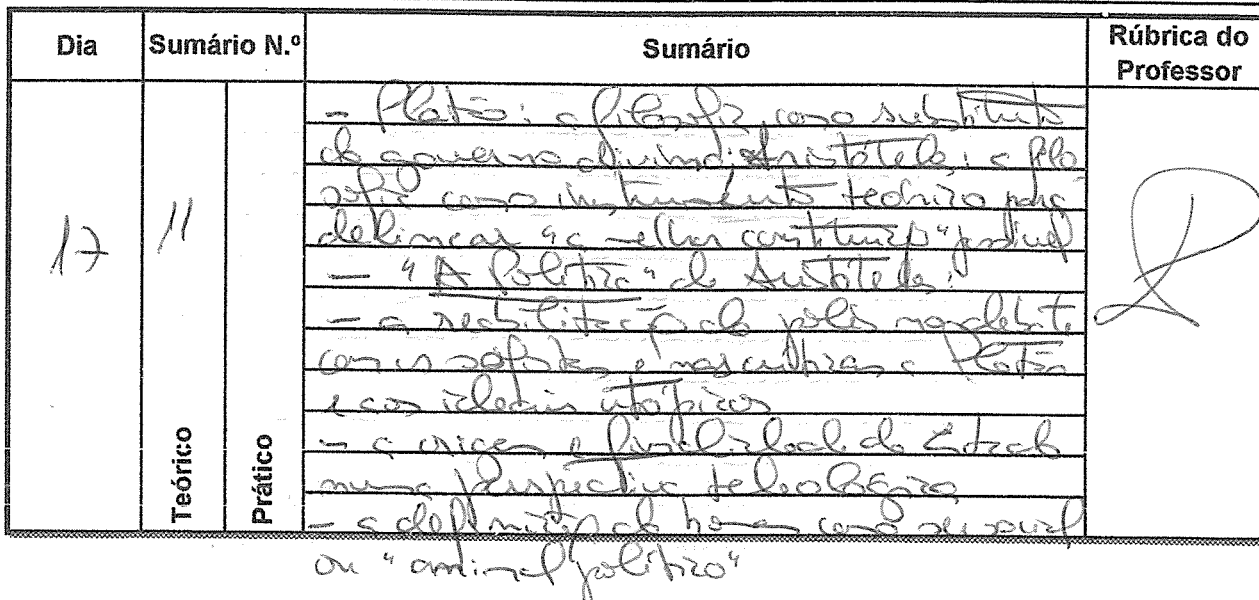 Dia Sumário N.º Sumário Rúbrica do Professor
17 11
Teórico
Prático
- Platão: a filosofia como substituto
do governo divino; Aristóteles: a filo
sofia como instrumento teórico para
delinear "a melhor constituição" possível
- "A Política" de Aristóteles:
- a reabilitação da pólis no debate
com os sofistas e nas críticas a Platão
e aos ideais utópicos
- a origem e finalidade do Estado
numa perspectiva teleológica
- a definição do homem como ser social
ou "animal político"